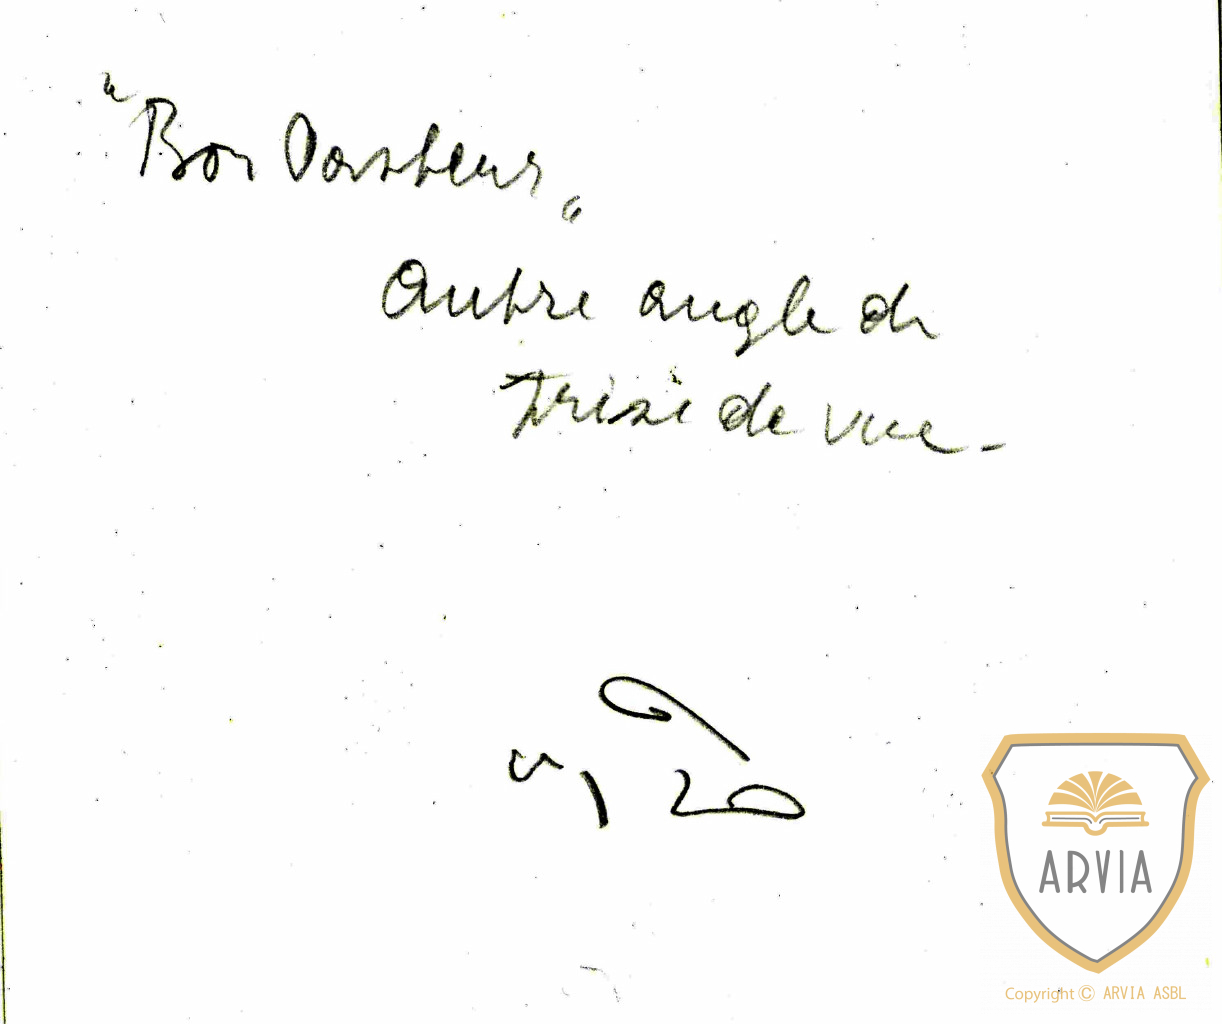 "Bon Pasteur"
Autre angle de
prise de vue -
ARVIA
Copyright © ARVIA ASBL